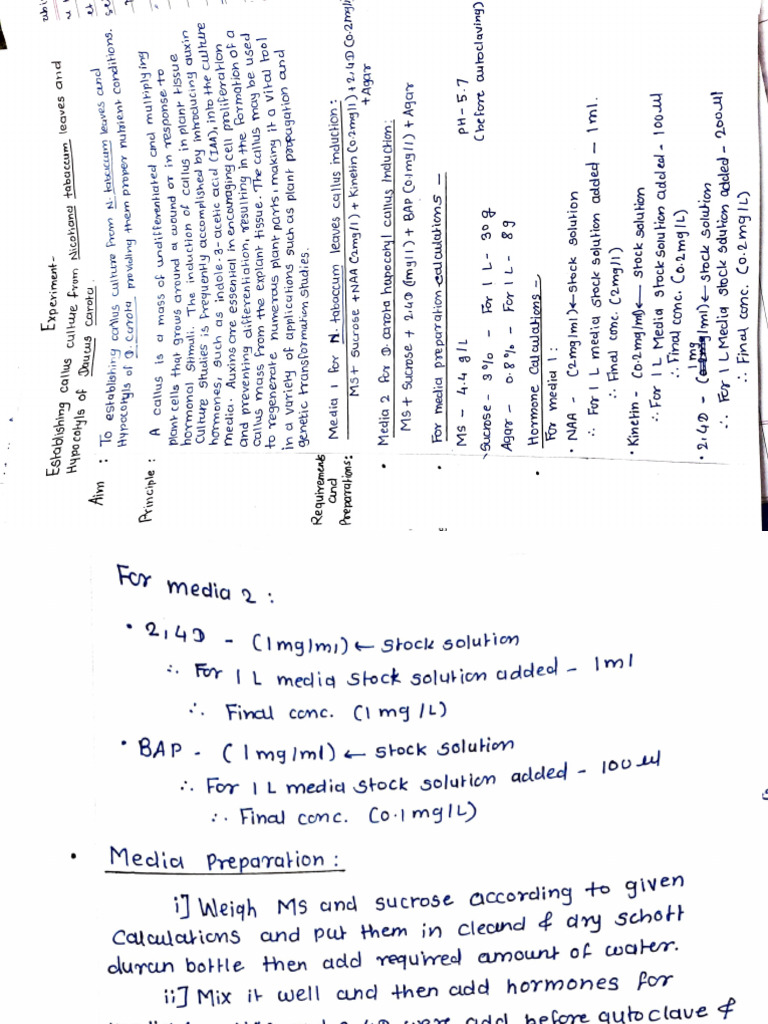 Experiment-
Establishing callus culture from Nicotiana tabaccum leaves and
Hypocotyls of Daucus carota.
Aim : To establishing callus culture from N. tabaccum leaves and
Hypocotyls of D. carota providing them proper nutrient conditions.
Principle : A callus is a mass of undifferentiated and multiplying
plant cells that grows around a wound or in response to
hormonal stimuli. The induction of callus in plant tissue
culture studies is frequently accomplished by introducing auxin
hormones, such as indole-3-acetic acid (IAA), into the culture
media. Auxins are essential in encouraging cell proliferation
and preventing differentiation, resulting in the formation of a
callus mass from the explant tissue. The callus may be used
to regenerate numerous plant parts, making it a vital tool
in a variety of applications such as plant propagation and
genetic transformation studies.
Requirements and Preparations:
Media 1 for N. tabaccum leaves callus induction:
MS + Sucrose + NAA (2mg/l) + Kinetin (0.2mg/l) + 2,4D (0.2mg/l)
+ Agar
• Media 2 for D. carota hypocotyl callus Induction:
MS + Sucrose + 2,4D (mg/l) + BAP (0.1mg/l) + Agar
• For media preparation calculations -
MS - 4.4 g/L PH - 5.7
Sucrose - 3% - For 1 L - 30g (before autoclaving)
Agar - 0.8% - For 1 L - 8g
• Hormone Calculations -
For media 1 :
• NAA - (2mg/ml) ← stock solution
∴ For 1 L media stock solution added - 1ml.
∴ Final conc. (2mg/l)
• Kinetin - (0.2mg/ml) ← stock solution
∴ For 1L Media stock solution added - 100ul
∴ Final conc. (0.2mg/L)
• 2,4D - (1mg/ml) ← stock solution
∴ For 1 L Media stock solution added - 200ul
∴ Final conc. (0.2mg/L)
For media 2 :
• 2,4D - (1mg/ml) ← stock solution
∴ For 1 L media stock solution added - 1ml
∴ Final conc. (1 mg/L)
• BAP - (1mg/ml) ← stock solution
∴ For 1 L media stock solution added - 100 ul
∴ Final conc. (0.1mg/L)
• Media Preparation :
i] Weigh MS and sucrose according to given
calculations and put them in cleand & dry schott
duran bottle then add required amount of water.
ii] Mix it well and then add hormones for
add before autoclave &